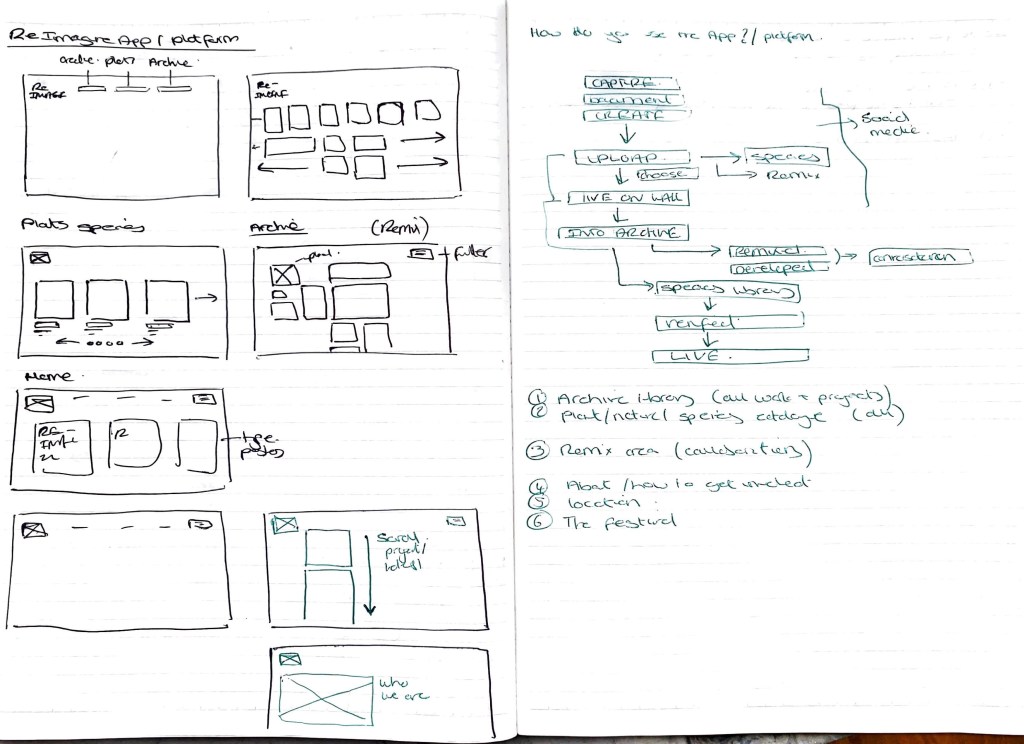 Re Imagine App / platform
Archive.
RE
IMAGE
RE-
Plants species
Archive (Remix)
plant.
filter
Home
RE-
R
type
posters
Scroll
project/
who
we are
How do you use the App?/ platform.
CAPTURE
Document
CREATE
Social
media
UPLOAD
species
choose
Remix
LIVE ON WALL
INTO ARCHIVE
Remixed
Developed
species library
LIVE.
① Archive library (all work + projects)
② Plant/nature/ species catalogue (all)
③ Remix area (collaborations)
④ About / how to get involved
⑤ location
⑥ The festival